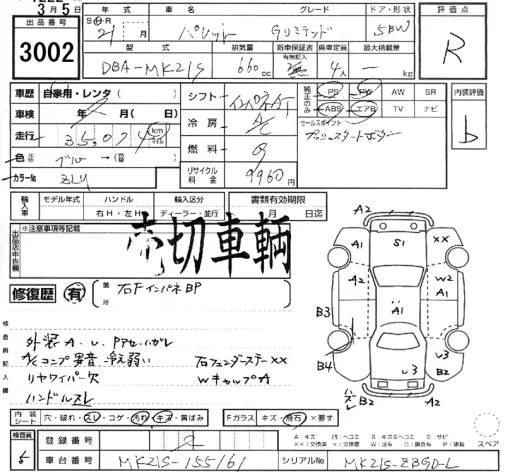 3月5日
出品番号
3002
年式 車名 グレード ドア・形状
S H R 21年 月 パレット Gリミテッド 5BW
型式 排気量 新車保証書 乗車定員 最大積載量
有無記入
DBA-MK21S 660cc 4人 kg
評価点
R
車歴 自家用・レンタ( )
車検 年 月( 日)
走行 35,074 km マイル
色
カラーNo ZLU
シフト インパネAT
冷房 A/C
燃料 G
リサイクル料金 9960円
純正のみ
PS PW AW SR
ABS エアB TV ナビ
セールスポイント
プッシュスタートボタン
内装評価
b
輸入車 モデル年式 ハンドル 輸入区分 書類有効期限
右H・左H ディーラー・並行 月 日迄
出品店申告欄
※注意事項等記載
売切車輌
修復歴 有 箇所
右FインパネBP
検査員記入欄
外装A・U PアセハガレA/Cコンプ異音 冷え弱い
右フェンダーステーXX
リヤワイパー欠
WキャップA
ハンドルスレ
A2
A1 S1 XX
A2 W2
A1
B3 A1 A2
B4 U3 W2
B2
キズズレ B2 A2
内装シート 穴・破れ・スレ・コゲ・汚れ・キズ・黄ばみ
Fガラス キズ・飛石・X要す
スペア
検査員
登録番号
車台番号 MK21S-155161
シリアルNo MK21S-ZBGD-L